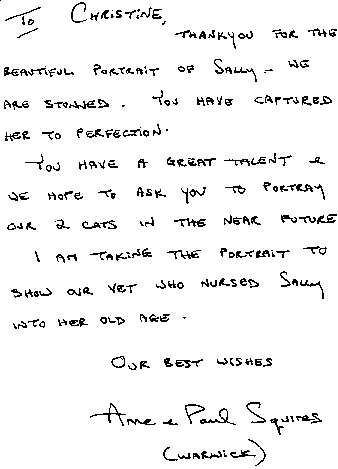 To CHRISTINE,
THANKYOU FOR THE
BEAUTIFUL PORTRAIT OF SALLY - WE
ARE STUNNED. YOU HAVE CAPTURED
HER TO PERFECTION.
YOU HAVE A GREAT TALENT &
WE HOPE TO ASK YOU TO PORTRAY
OUR 2 CATS IN THE NEAR FUTURE
I AM TAKING THE PORTRAIT TO
SHOW OUR VET WHO NURSED SALLY
INTO HER OLD AGE.
OUR BEST WISHES
Anne & Paul Squires
(WARWICK)